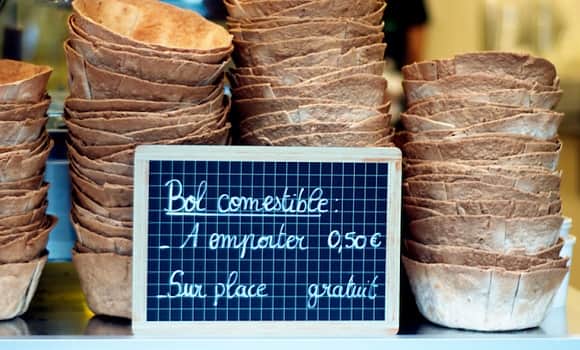 Bol comestible :
_ A emporter 0,50 €
_ Sur place gratuit